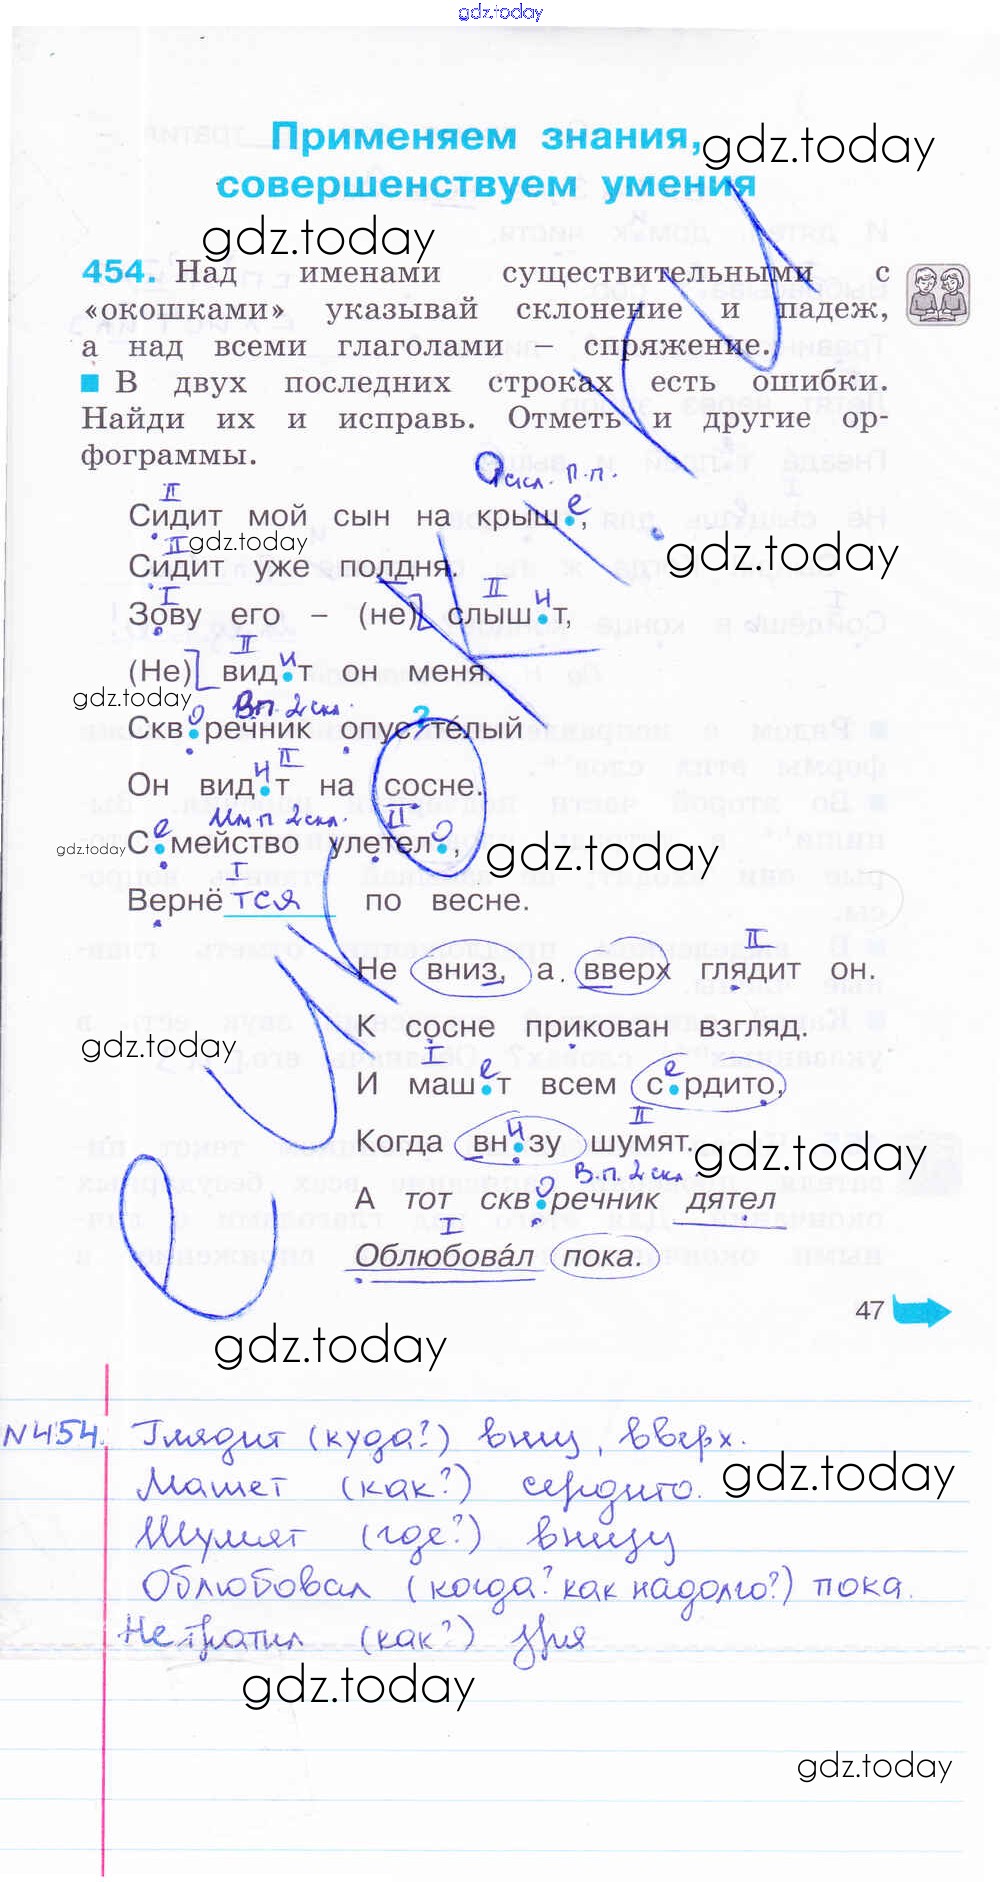 gdz.today
Применяем знания,
gdz.today
совершенствуем умения
gdz.today
454. Над именами существительными с
«окошками» указывай склонение и падеж,
а над всеми глаголами — спряжение.
В двух последних строках есть ошибки.
Найди их и исправь. Отметь и другие ор-
фограммы.
II 1 скл. П.п.
Сидит мой сын на крыше,
gdz.today
gdz.today
II
Сидит уже полдня.
I II
Зову его – (не) слышит,
II
(Не) видит он меня.
gdz.today
В.п. 2 скл. ?
Скворечник опусте́лый
II
Он видит на сосне.
Им.п 2 скл. II
Семейство улетело,
gdz.today
gdz.today
I
Вернётся по весне.
II
Не вниз, а вверх глядит он.
К сосне прикован взгляд.
gdz.today
I
И машет всем сердито,
II
Когда внизу шумят.
gdz.today
В.п. 2 скл
А тот скворечник дятел
I
Облюбова́л пока.
47
gdz.today
ОШИБКИ
N454. Глядит (куда?) вниз, вверх.
gdz.today
Машет (как?) сердито.
Шумят (где?) внизу
Облюбовал (когда? как надолго?) пока.
Не тратил (как?) зря
gdz.today
gdz.today